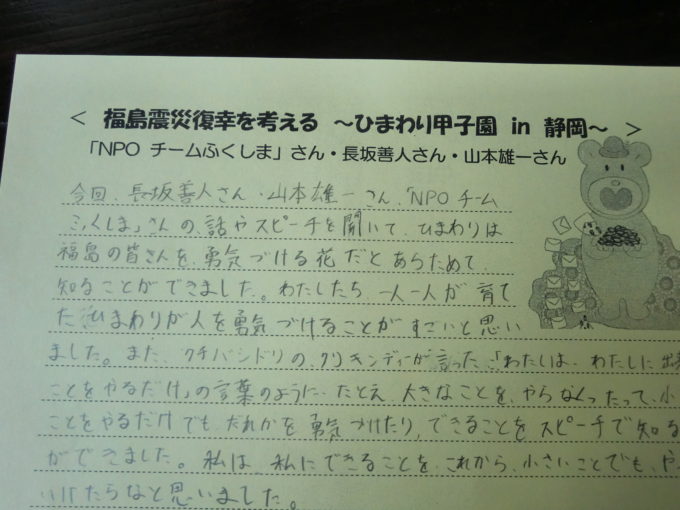 < 福島震災復幸を考える ～ひまわり甲子園 in 静岡～ >
「NPO チームふくしま」さん・長坂善人さん・山本雄一さん
今回、長坂善人さん・山本雄一さん、「NPO チーム
ふくしま」さんの、話やスピーチを聞いて、ひまわりは
福島の皆さんを、勇気づける花だとあらためて、
知ることができました。わたしたち一人一人が育て
たひまわりが人を勇気づけることがすごいと思い
ました。また、クチバシドリの、クリキンディーが言った、「わたしは、わたしに出来
ことをやるだけ」の言葉のように、たとえ、大きなことを、やらなくったって、小
ことをやるだけでもだれかを勇気づけたり、できることをスピーチで知る
ができました。私は、私にできることを、これから、小さいことでも、や
いけたらなと思いました。